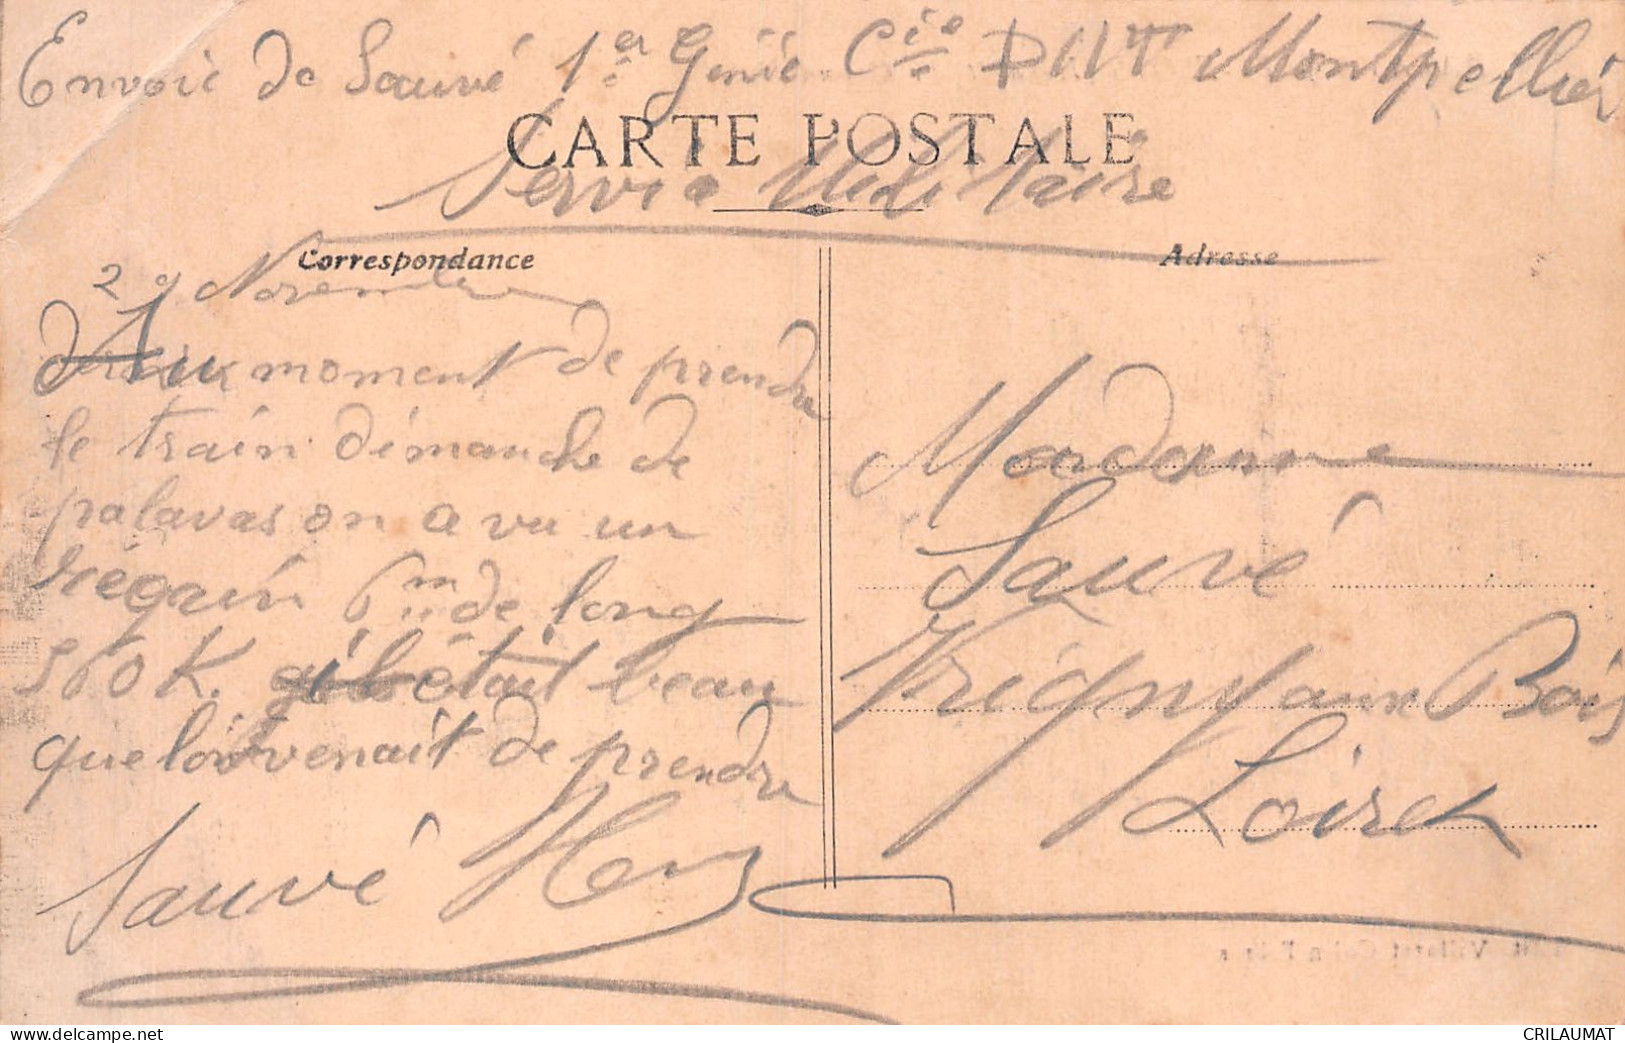 Envoie de Sauvé 1er Génie Cie D Montpellier
CARTE POSTALE
Service Militaire
Correspondance
Adresse
29 Novembre
Au moment de prendre
le train dimanche de
palavas on a vu un
réquin 6m de long
560 K. était beau
que l'on venait de prendre
Sauvé
Madame
Sauvé
Vrigny aux Bois
Loiret
Villaret
CRILAUMAT